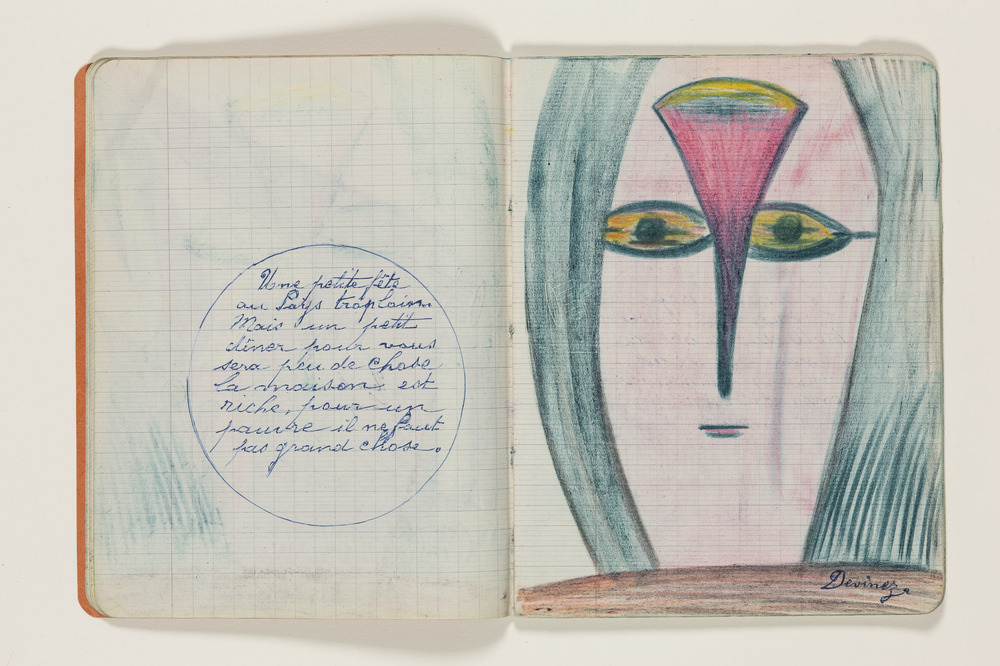 Une petite fête
au Pays trop loim
Mais un petit
dîner pour vous
sera peu de chose
la maison est
riche, pour un
pauvre il ne faut
pas grand chose.
Devinez